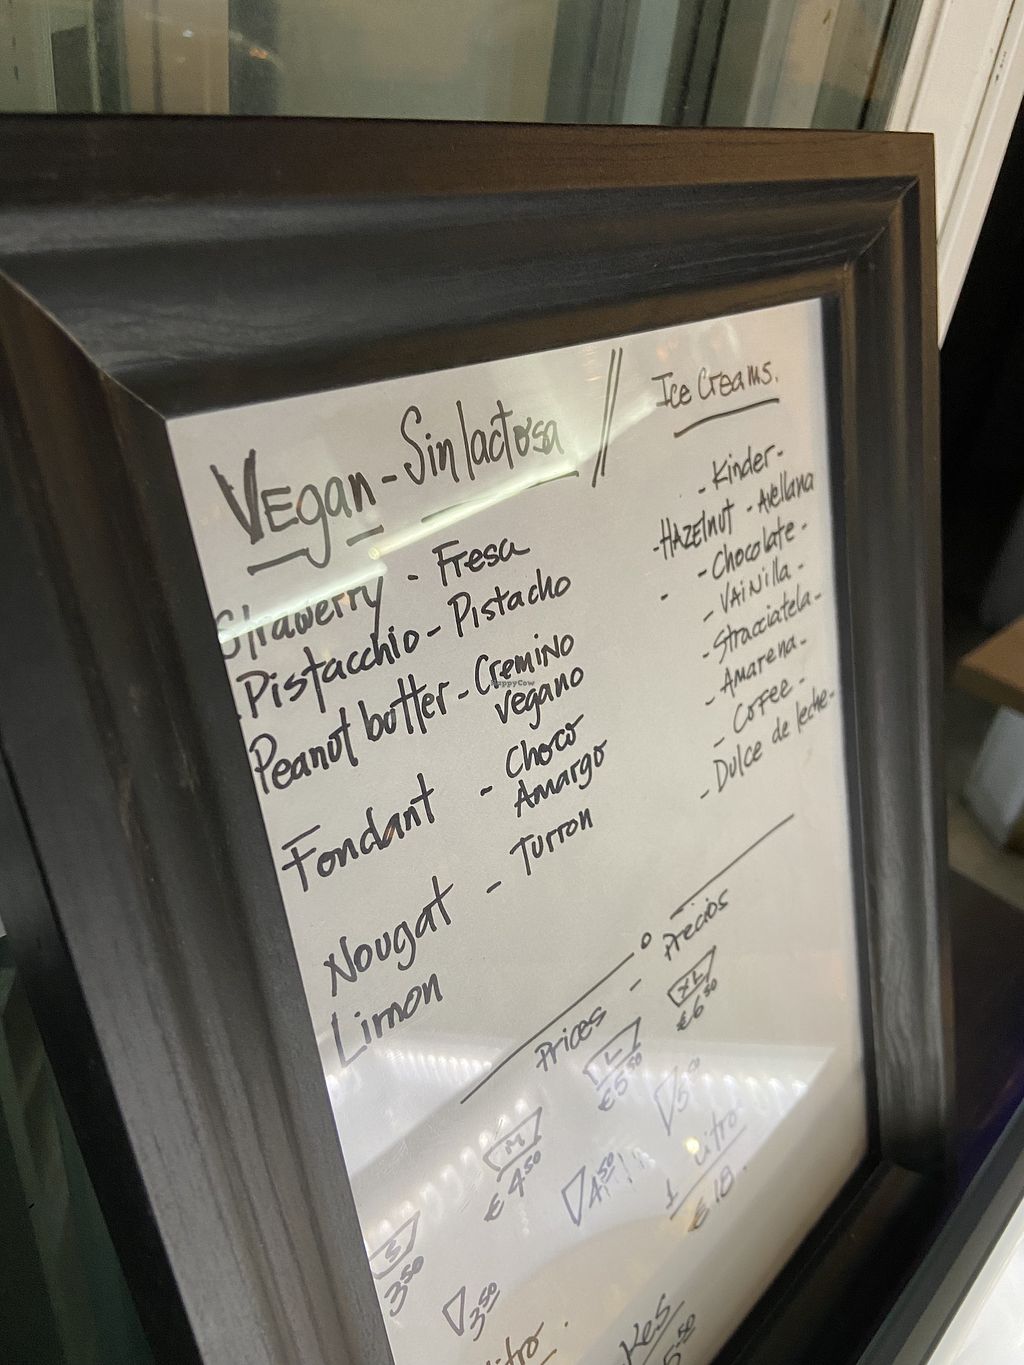 Vegan - Sin lactosa //
Strawerry - Fresa
Pistacchio - Pistacho
Peanut butter - Cremino
Vegano
Fondant - Choco
Amargo
Nougat - Turron
Limon
Ice Creams.
- Kinder -
- HAZElnut - Avellana
- Chocolate -
- VAiNilla -
- Stracciatela -
- Amarena -
- Coffee -
- Dulce de leche -
Prices - Precios
S M L XL
3.50 € 4.50 € 5.50 € 6.50
3.50 4.50 5.50
1 Litro
€ 18.
HappyCow